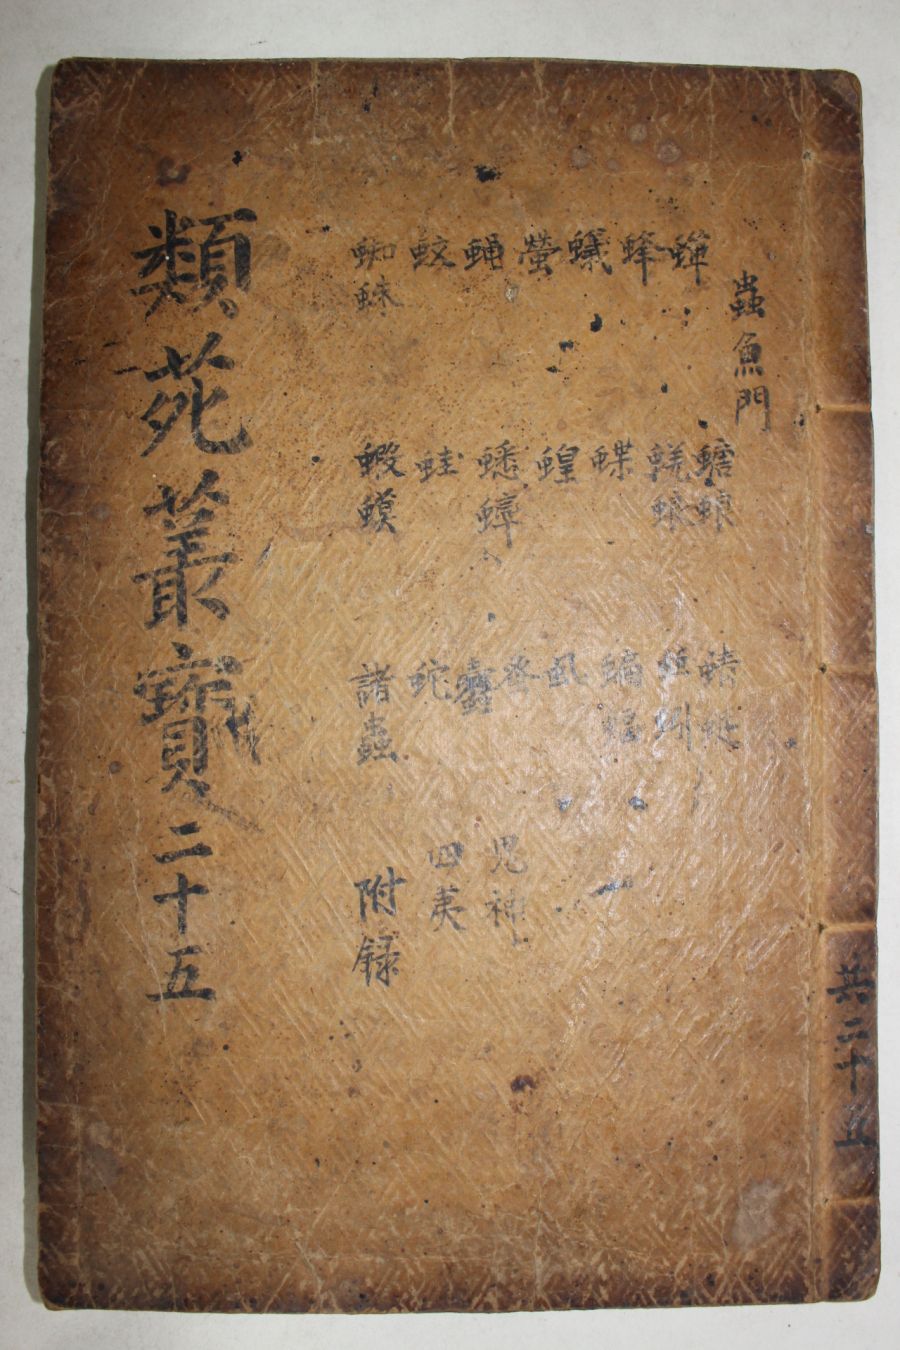 共二十五
蟲魚門
蟬 螗蜋 蜻蜓
蜂 蜣蜋 蚯蚓
蟻 蝶 蝙蝠
螢 蝗 虱
蠅 蟋蟀 蚤 蠹 鬼神
蚊 蛙 蛇 四夷
蜘蛛 蝦蟆 諸蟲 附録
類苑叢寶二十五